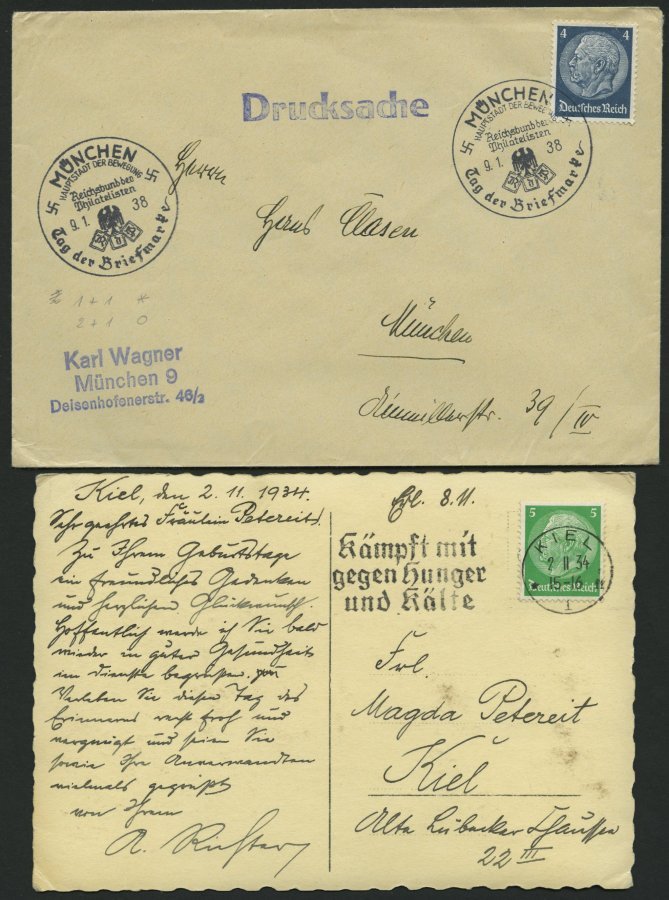 4 4
Deutsches Reich
Drucksache
MÜNCHEN
HAUPTSTADT DER BEWEGUNG
Reichsbund der
Philatelisten
9.1. 38
R d P
Tag der Briefmarke
MÜNCHEN
HAUPTSTADT DER BEWEGUNG
Reichsbund der
Philatelisten
9.1. 38
Tag der Briefmarke
Herrn
Hans Clasen
München
39/IV
1 + 1 *
2 + 1 O
Karl Wagner
München 9
Deisenhofenerstr. 46/2
Kiel, den 2.11.1934.
Sehr geehrtes Fräulein Petereit!
Zu Ihrem Geburtstage
ein freundliches Gedenken
und herzlichen Glückwunsch.
Hoffentlich werde ich Sie bald
wieder in guter Gesundheit
im Dienste begrüßen.
Verleben Sie diesen Tag des
Erinnerns recht froh und
vergnügt und seien Sie
sowie Ihre Anverwandten
vielmals gegrüßt
von Ihrem
A. Richter
8.11.
Kämpft mit
gegen Hunger
und Kälte
5 5
Deutsches Reich
KIEL
2 11 34
15-16
1
Frl.
Magda Petereit
Kiel
Alte Lübecker Chaussee
22 III